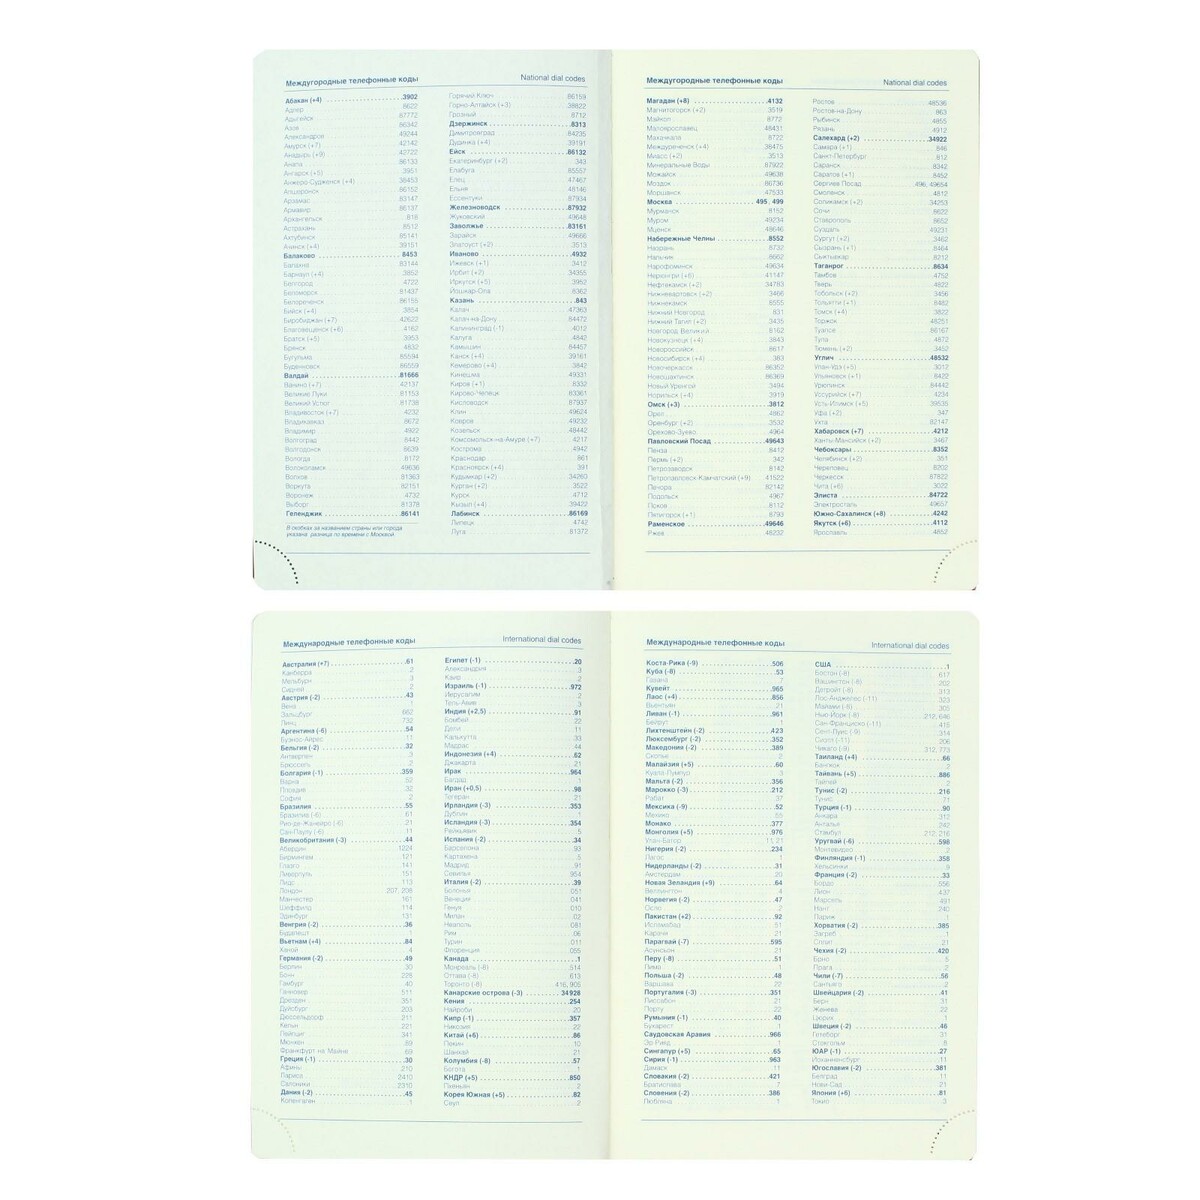 Междугородные телефонные коды National dial codes
Абакан (+4) 3902
Адлер 8622
Адыгейск 87772
Азов 86342
Александров 49244
Амурск (+7) 42142
Анадырь (+9) 42722
Анапа 86133
Ангарск (+5) 3951
Анжеро-Судженск (+4) 38453
Апшеронск 86152
Арзамас 83147
Армавир 86137
Архангельск 818
Астрахань 8512
Ахтубинск 85141
Ачинск (+4) 39151
Балаково 8453
Балахна 83144
Барнаул (+4) 3852
Белгород 4722
Беломорск 81437
Белореченск 86155
Бийск (+4) 3854
Биробиджан (+7) 42622
Благовещенск (+6) 4162
Братск (+5) 3953
Брянск 4832
Бугульма 85594
Буденновск 86559
Валдай 81666
Ванино (+7) 42137
Великие Луки 81153
Великий Устюг 81738
Владивосток (+7) 4232
Владикавказ 8672
Владимир 4922
Волгоград 8442
Волгодонск 8639
Вологда 8172
Волоколамск 49636
Волхов 81363
Воркута 82151
Воронеж 4732
Выборг 81378
Геленджик 86141
В скобках за названием страны или города
указана разница по времени с Москвой.
Горячий Ключ 86159
Горно-Алтайск (+3) 38822
Грозный 8712
Дзержинск 8313
Димитровград 84235
Дудинка (+4) 39191
Ейск 86132
Екатеринбург (+2) 343
Елабуга 85557
Елец 47467
Ельня 48146
Ессентуки 87934
Железноводск 87932
Жуковский 49648
Заволжье 83161
Зарайск 49666
Златоуст (+2) 3513
Иваново 4932
Ижевск (+1) 3412
Ирбит (+2) 34355
Иркутск (+5) 3952
Йошкар-Ола 8362
Казань 843
Калач 47363
Калач-на-Дону 84472
Калининград (-1) 4012
Калуга 4842
Камышин 84457
Канск (+4) 39161
Кемерово (+4) 3842
Кинешма 49331
Киров (+1) 8332
Кирово-Чепецк 83361
Кисловодск 87937
Клин 49624
Ковров 49232
Козельск 48442
Комсомольск-на-Амуре (+7) 4217
Кострома 4942
Краснодар 861
Красноярск (+4) 391
Кудымкар (+2) 34260
Курган (+2) 3522
Курск 4712
Кызыл (+4) 39422
Лабинск 86169
Липецк 4742
Луга 81372
Междугородные телефонные коды National dial codes
Магадан (+8) 4132
Магнитогорск (+2) 3519
Майкоп 8772
Малоярославец 48431
Махачкала 8722
Междуреченск (+4) 38475
Миасс (+2) 3513
Минеральные Воды 87922
Можайск 49638
Моздок 86736
Моршанск 47533
Москва 495, 499
Мурманск 8152
Муром 49234
Мценск 48646
Набережные Челны 8552
Назрань 8732
Нальчик 8662
Нарофоминск 49634
Нерюнгри (+6) 41147
Нефтекамск (+2) 34783
Нижневартовск (+2) 3466
Нижнекамск 8555
Нижний Новгород 831
Нижний Тагил (+2) 3435
Новгород Великий 8162
Новокузнецк (+4) 3843
Новороссийск 8617
Новосибирск (+4) 383
Новочеркасск 86352
Новошахтинск 86369
Новый Уренгой 3494
Норильск (+4) 3919
Омск (+3) 3812
Орел 4862
Оренбург (+2) 3532
Орехово-Зуево 4964
Павловский Посад 49643
Пенза 8412
Пермь (+2) 342
Петрозаводск 8142
Петропавловск-Камчатский (+9) 41522
Печора 82142
Подольск 4967
Псков 8112
Пятигорск (+1) 8793
Раменское 49646
Ржев 48232
Ростов 48536
Ростов-на-Дону 863
Рыбинск 4855
Рязань 4912
Салехард (+2) 34922
Самара (+1) 846
Санкт-Петербург 812
Саранск 8342
Саратов (+1) 8452
Сергиев Посад 496, 49654
Смоленск 4812
Соликамск (+2) 34253
Сочи 8622
Ставрополь 8652
Суздаль 49231
Сургут (+2) 3462
Сызрань (+1) 8464
Сыктывкар 8212
Таганрог 8634
Тамбов 4752
Тверь 4822
Тобольск (+2) 3456
Тольятти (+1) 8482
Томск (+4) 3822
Торжок 48251
Туапсе 86167
Тула 4872
Тюмень (+2) 3452
Углич 48532
Улан-Удэ (+5) 3012
Ульяновск (+1) 8422
Урюпинск 84442
Уссурийск (+7) 4234
Усть-Илимск (+5) 39535
Уфа (+2) 347
Ухта 82147
Хабаровск (+7) 4212
Ханты-Мансийск (+2) 3467
Чебоксары 8352
Челябинск (+2) 351
Череповец 8202
Черкесск 87822
Чита (+6) 3022
Элиста 84722
Электросталь 49657
Южно-Сахалинск (+8) 4242
Якутск (+6) 4112
Ярославль 4852
Международные телефонные коды International dial codes
Австралия (+7) 61
Канберра 2
Мельбурн 3
Сидней 2
Австрия (-2) 43
Вена 1
Зальцбург 662
Линц 732
Аргентина (-6) 54
Буэнос-Айрес 11
Бельгия (-2) 32
Антверпен 3
Брюссель 2
Болгария (-1) 359
Варна 52
Пловдив 32
София 2
Бразилия 55
Бразилиа (-6) 61
Рио-де-Жанейро (-6) 21
Сан-Паулу (-6) 11
Великобритания (-3) 44
Абердин 1224
Бирмингем 121
Глазго 141
Ливерпуль 151
Лидс 113
Лондон 207, 208
Манчестер 161
Шеффилд 114
Эдинбург 131
Венгрия (-2) 36
Будапешт 1
Вьетнам (+4) 84
Ханой 4
Германия (-2) 49
Берлин 30
Бонн 228
Гамбург 40
Ганновер 511
Дрезден 351
Дуйсбург 203
Дюссельдорф 211
Кельн 221
Лейпциг 341
Мюнхен 89
Франкфурт на Майне 69
Греция (-1) 30
Афины 210
Лариса 2410
Салоники 2310
Дания (-2) 45
Копенгаген 1
Египет (-1) 20
Александрия 3
Каир 2
Израиль (-1) 972
Иерусалим 2
Тель-Авив 3
Индия (+2,5) 91
Бомбей 22
Дели 11
Калькутта 33
Мадрас 44
Индонезия (+4) 62
Джакарта 21
Ирак 964
Багдад 1
Иран (+0,5) 98
Тегеран 21
Ирландия (-3) 353
Дублин 1
Исландия (-3) 354
Рейкьявик 5
Испания (-2) 34
Барселона 93
Картахена 5
Мадрид 91
Севилья 954
Италия (-2) 39
Болонья 051
Венеция 041
Генуя 010
Милан 02
Неаполь 081
Рим 06
Турин 011
Флоренция 055
Канада 1
Монреаль (-8) 514
Оттава (-8) 613
Торонто (-8) 416, 905
Канарские острова (-3) 34928
Кения 254
Найроби 20
Кипр (-1) 357
Никозия 22
Китай (+5) 86
Пекин 10
Шанхай 21
Колумбия (-8) 57
Богота 1
КНДР (+5) 850
Пхеньян 2
Корея Южная (+5) 82
Сеул 2
Международные телефонные коды International dial codes
Коста-Рика (-9) 506
Куба (-8) 53
Гавана 7
Кувейт 965
Лаос (+4) 856
Вьентьян 21
Ливан (-1) 961
Бейрут 1
Лихтенштейн (-2) 423
Люксембург (-2) 352
Македония (-2) 389
Скопье 2
Малайзия (+5) 60
Куала-Лумпур 3
Мальта (-2) 356
Марокко (-3) 212
Рабат 37
Мексика (-9) 52
Мехико 55
Монако 377
Монголия (+5) 976
Улан-Батор 11, 21
Нигерия (-2) 234
Лагос 1
Нидерланды (-2) 31
Амстердам 20
Новая Зеландия (+9) 64
Веллингтон 4
Норвегия (-2) 47
Осло 2
Пакистан (+2) 92
Исламабад 51
Карачи 21
Парагвай (-7) 595
Асунсьон 21
Перу (-8) 51
Лима 1
Польша (-2) 48
Варшава 22
Португалия (-3) 351
Лиссабон 21
Порту 22
Румыния (-1) 40
Бухарест 1
Саудовская Аравия 966
Эр-Рияд 1
Сингапур (+5) 65
Сирия (-1) 963
Дамаск 11
Словакия (-2) 421
Братислава 7
Словения (-2) 386
Любляна 1
США 1
Бостон (-8) 617
Вашингтон (-8) 202
Детройт (-8) 313
Лос-Анджелес (-11) 323
Майами (-8) 305
Нью-Йорк (-8) 212, 646
Сан-Франциско (-11) 415
Сент-Луис (-9) 314
Сиэтл (-11) 206
Чикаго (-9) 312, 773
Таиланд (+4) 66
Бангкок 2
Тайвань (+5) 886
Тайпей 2
Тунис (-2) 216
Тунис 71
Турция (-1) 90
Анкара 312
Анталья 242
Стамбул 212, 216
Уругвай (-6) 598
Монтевидео 2
Финляндия (-1) 358
Хельсинки 9
Франция (-2) 33
Бордо 556
Лион 437
Марсель 491
Нант 240
Париж 1
Хорватия (-2) 385
Загреб 1
Сплит 21
Чехия (-2) 420
Брно 5
Прага 2
Чили (-7) 56
Сантьяго 2
Швейцария (-2) 41
Берн 31
Женева 22
Цюрих 1
Швеция (-2) 46
Гетеборг 31
Стокгольм 8
ЮАР (-1) 27
Йоханнесбург 11
Югославия (-2) 381
Белград 11
Нови-Сад 21
Япония (+6) 81
Токио 3